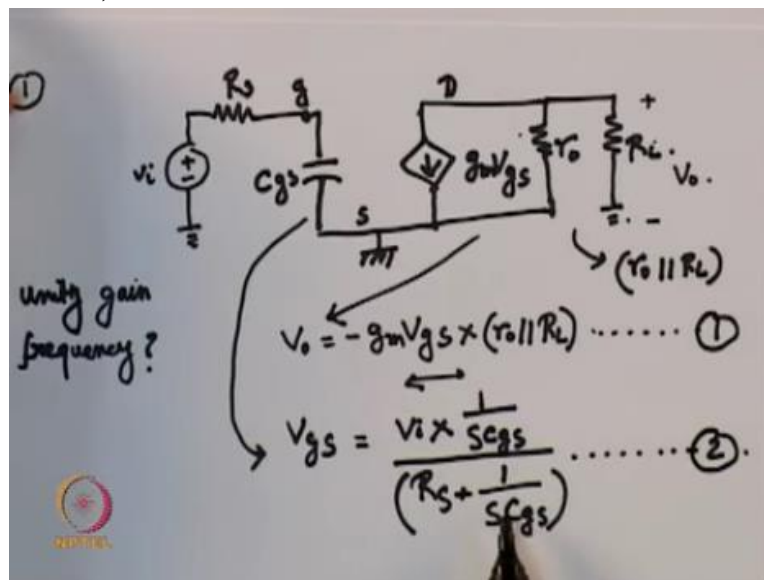 ①
Rs g D +
vi Cgs gmVgs ro RL Vo.
S -
(ro || RL)
unity gain
frequency?
Vo = -gmVgs × (ro || RL) ...... ①
Vgs = Vi × 1/SCgs / (RS + 1/SCgs) ...... ②.
NPTEL